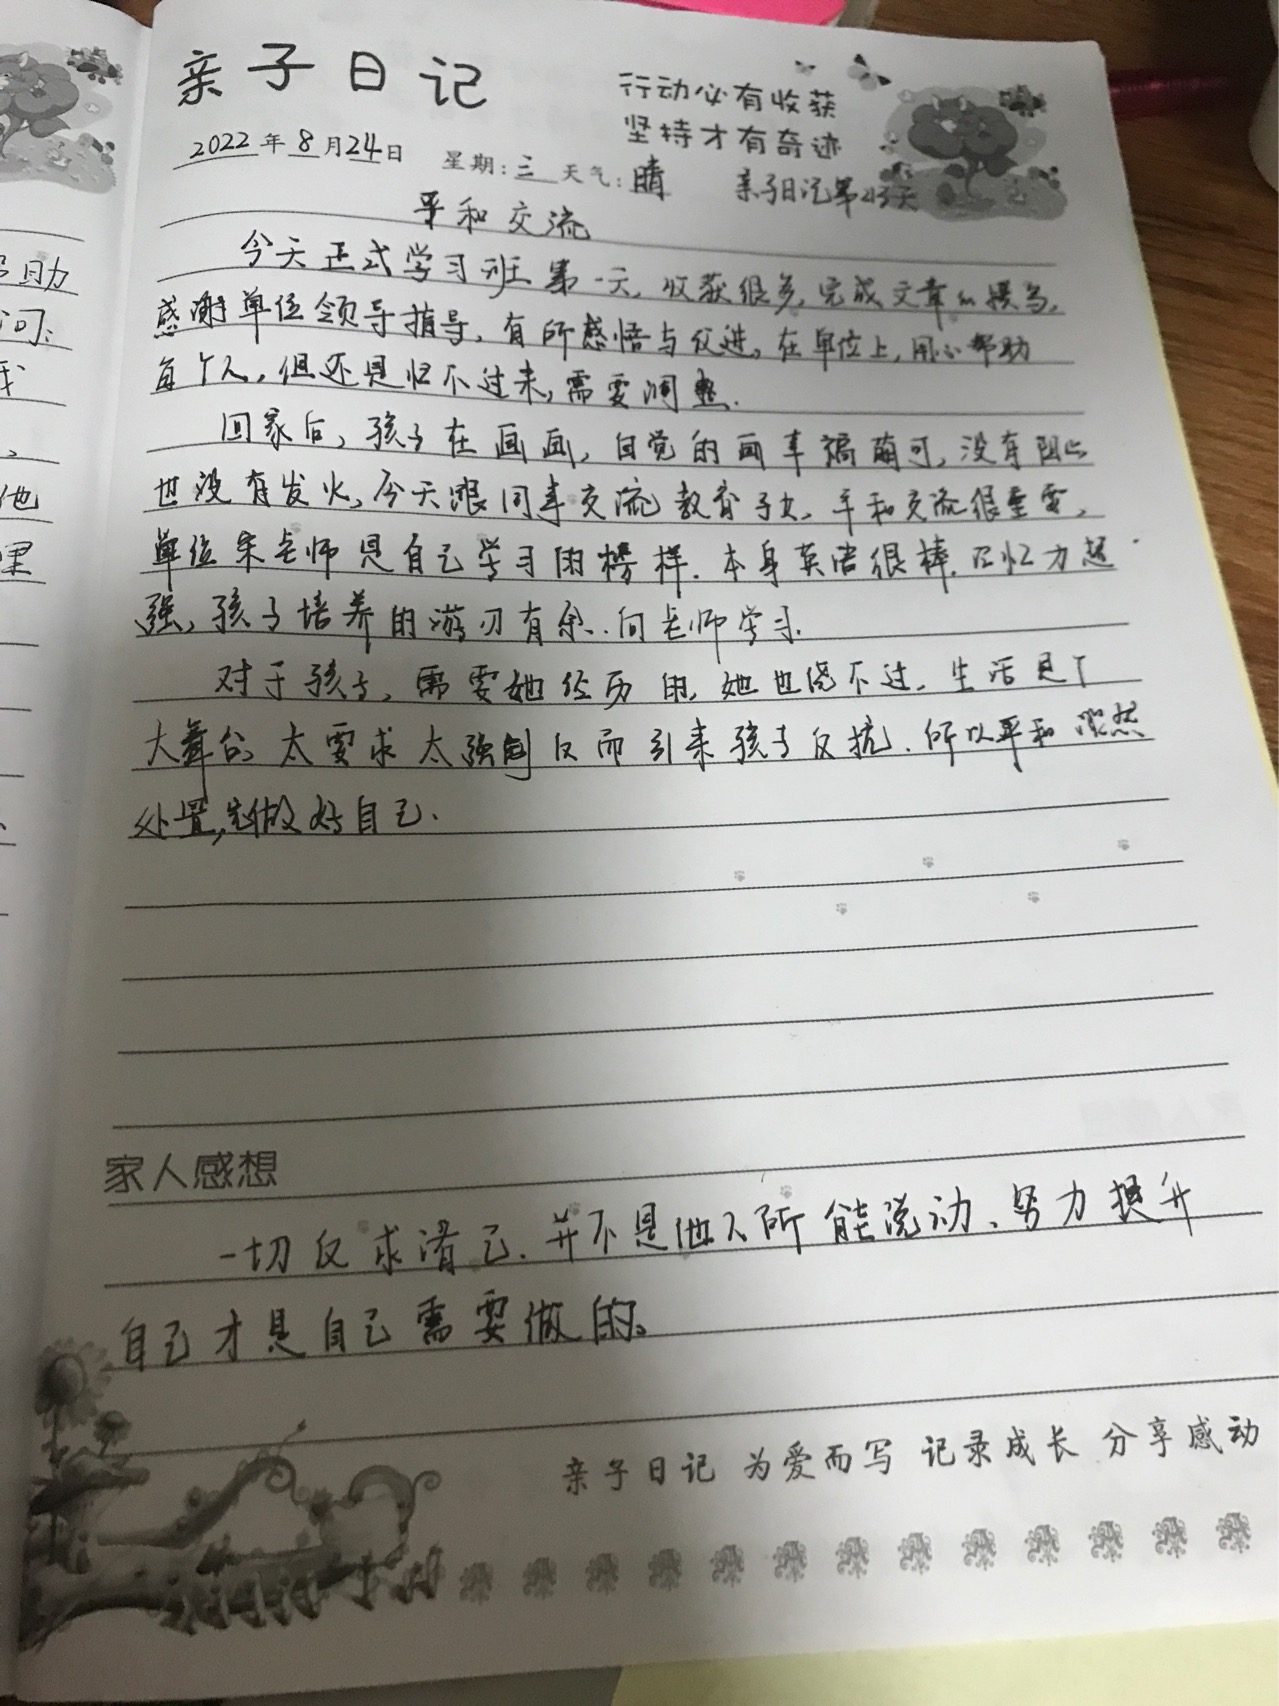 亲子日记
行动必有收获
坚持才有奇迹
2022年8月24日 星期:三 天气:晴 亲子日记第43天
平和交流
今天正式学习班第一天,收获很多,完成文章的撰写,
感谢单位领导指导,有所感悟与促进。在单位上,用心帮助
每个人,但还是归不过来,需要调整.
回家后,孩子在画画,自觉的画幸福萌可,没有阻止
也没有发火,今天跟同事交流教育子女,平和交流很重要,
单位朱老师是自己学习的榜样.本身英语很棒,记忆力超
强,孩子培养的游刃有余.向老师学习.
对于孩子,需要她经历的,她也绕不过.生活是个
大舞台,太要求太强制反而引来孩子反抗.所以平和淡然
处置,先做好自己.
家人感想
一切反求诸己.并不是他人所能说动、努力提升
自己才是自己需要做的。
亲子日记 为爱而写 记录成长 分享感动
助
问:
我
,
他
果